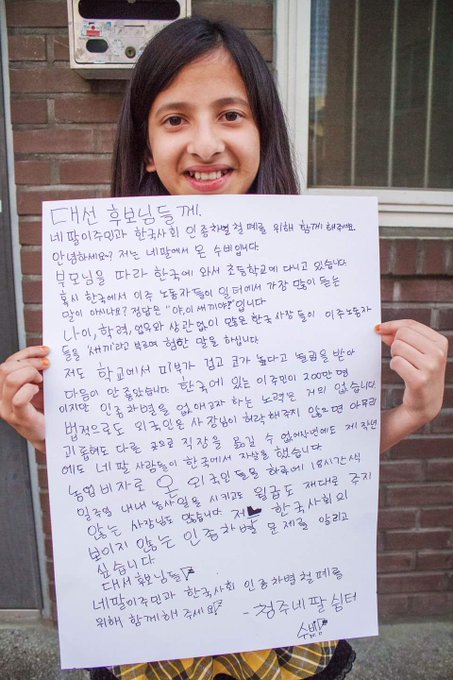 대선 후보님들께.
네팔이주민과 한국사회 인종차별 철폐를 위해 함께 해주세요.
안녕하세요? 저는 네팔에서 온 수비입니다.
부모님을 따라 한국에 와서 초등학교에 다니고 있습니다.
혹시 한국에서 이주 노동자들이 일터에서 가장 많이 듣는
말이 아시나요? 정답은 "야, 이 새끼야!"입니다
나이, 학력, 업무와 상관없이 많은 한국 사장들이 이주노동자
들을 '새끼'라고 부르며 험한 말을 하십니다
저도 학교에서 피부가 검고 코가 높다고 놀림을 받아
마음이 안 좋았습니다. 한국에 있는 이주민이 200만 명
이지만 인종차별을 없애고자 하는 노력은 거의 없습니다.
법적으로도 외국인은 사장님이 허락해주지 않으면 아무리
괴롭혀도 다른 곳으로 직장을 옮길 수 없어
에도 네팔 사람들이 한국에서 자살을 했습니다
농업비자로 온 외국인들을 하루에 18시간씩
일주일 내내 농사일을 시키고도 월급도 제대로 주지
않는 사장님도 많습니다 저는 한국사회의
보이지 않는 인종차별 문제를 알리고
싶습니다
대선후보님들
네팔이주민과 한국사회 인종차별 철폐를
위해 함께해 주세요 - 청주네팔쉼터
수비